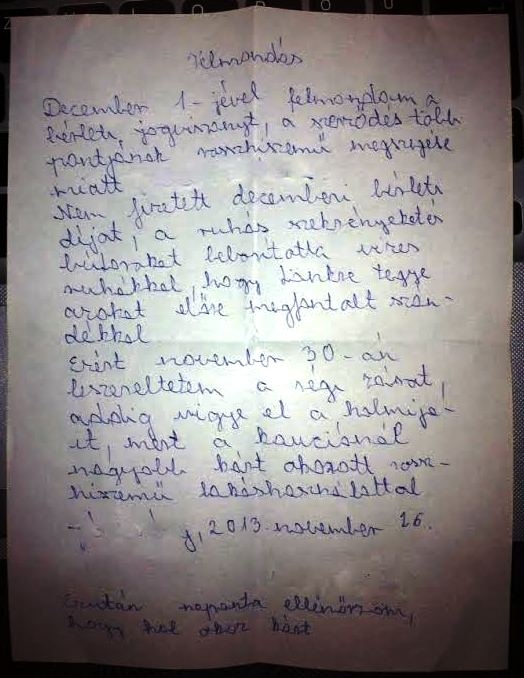 Felmondás
December 1-jével felmondom a
bérleti jogviszonyt, a szerződés több
pontjának rosszhiszemű megszegése
miatt
Nem fizetett decemberi bérleti
díjat, a ruhás szekrényeket és
bútorokat leborította vizes
ruhákkal, hogy tönkre tegye
azokat előre megfontolt szán-
dékkal
Ezért november 30-án
leszereltetem a régi zárat,
addig vigye el a holmija-
it, mert a kauciónál
nagyobb kárt okozott rossz-
hiszemű lakáshasználattal
, 2013. november 26.
Ezután naponta ellenőrzöm,
hogy hol okoz kárt